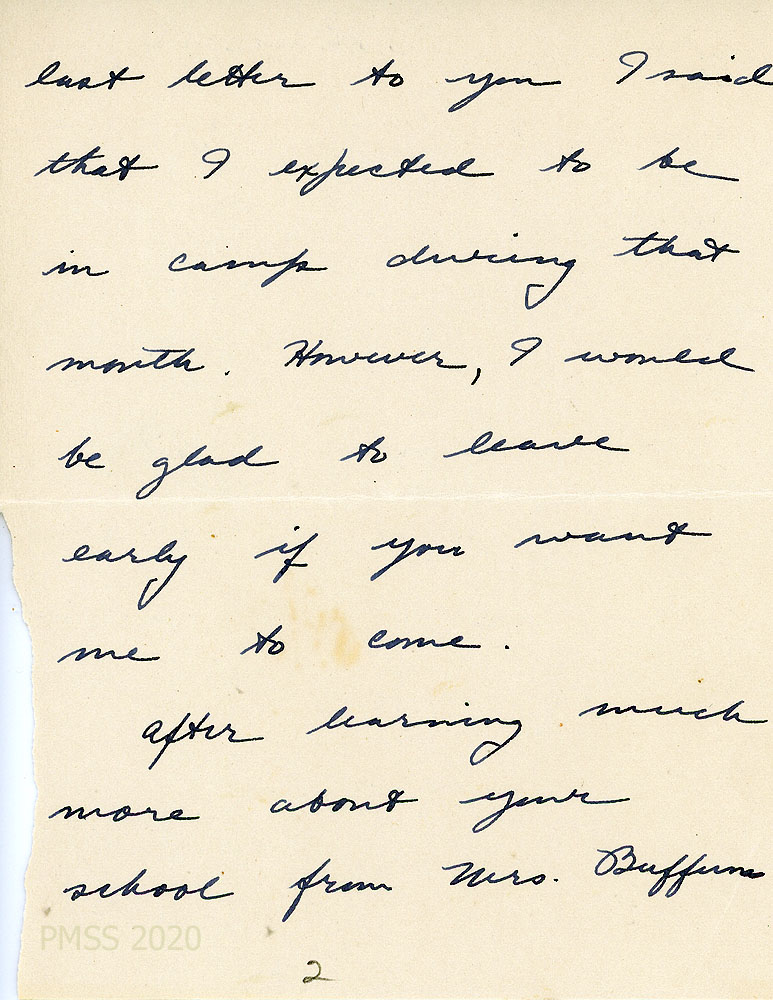 last letter to you I said
that I expected to be
in camp during that
month. However, I would
be glad to leave
early if you want
me to come.
after learning much
more about your
school from Mrs. Buffum
PMSS 2020
2